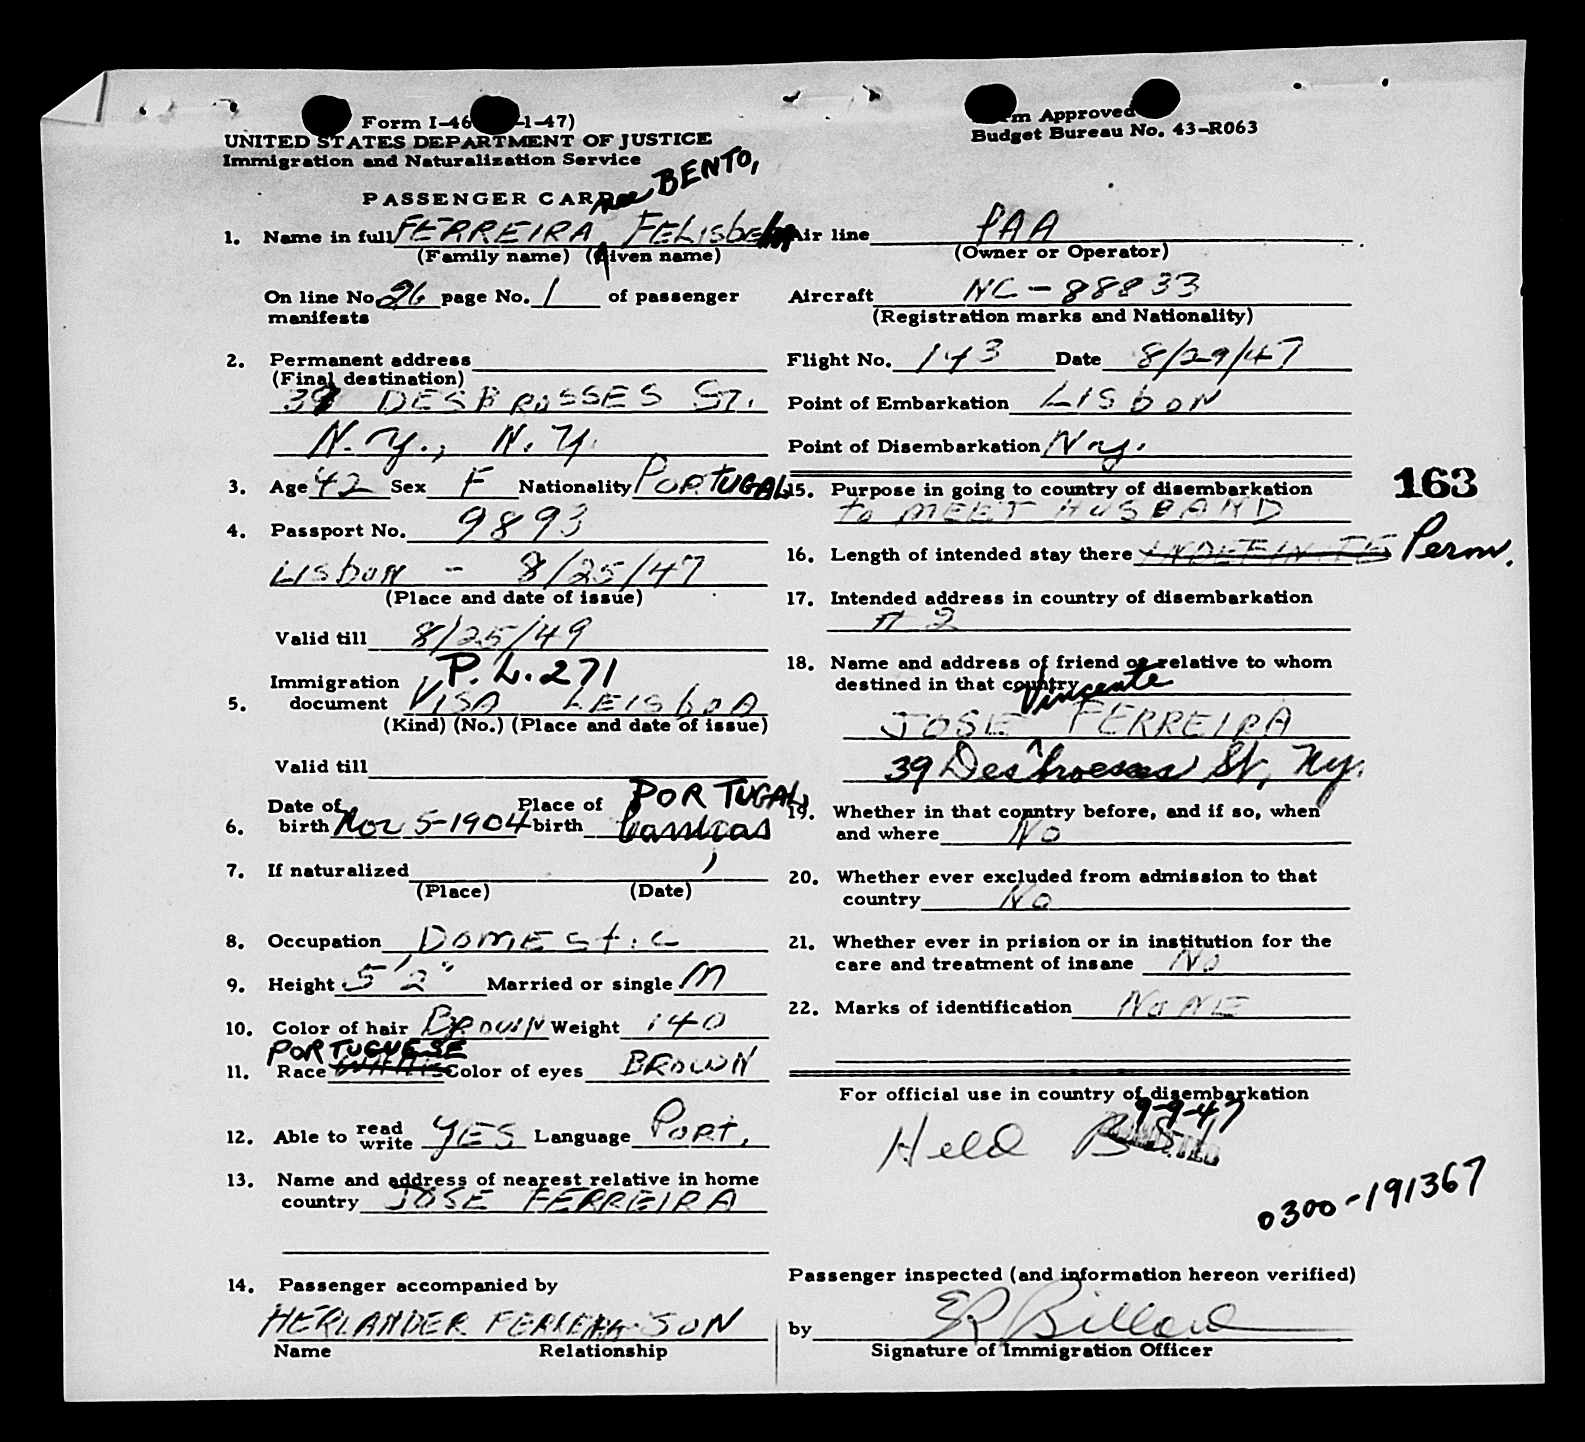 Form I-46 -1-47)
UNITED STATES DEPARTMENT OF JUSTICE
Immigration and Naturalization Service
PASSENGER CARD
nee BENTO,
1. Name in full FERREIRA, FELISbE
(Family name) (Given name)
On line No. 26 page No. 1 of passenger
manifests
2. Permanent address
(Final destination)
39 DESBROSSES ST.
N.Y., N.Y.
3. Age 42 Sex F Nationality PORTUGAL
4. Passport No. 9893
LISbON - 8/25/47
(Place and date of issue)
Valid till 8/25/49
P.L. 271
Immigration
5. document VISA LEISbOA
(Kind) (No.) (Place and date of issue)
Valid till
PORTUGAL
Date of Place of
6. birth Nov 5-1904 birth
7. If naturalized
(Place) (Date)
8. Occupation DOMEStiC
9. Height 5'2" Married or single M
10. Color of hair BROWN Weight 140
PORTUGUESE
11. Race Color of eyes BROWN
12. Able to read write YES Language PORT.
13. Name and address of nearest relative in home
country JOSE FERREIRA
14. Passenger accompanied by
HERLANDER FERREIRA-SON
Name Relationship
Form Approved
Budget Bureau No. 43-R063
Air line PAA
(Owner or Operator)
Aircraft NC-88833
(Registration marks and Nationality)
Flight No. 143 Date 8/29/47
Point of Embarkation LISbON
Point of Disembarkation N.Y.
163
15. Purpose in going to country of disembarkation
to MEET HUSBAND
16. Length of intended stay there INDEFINITE Perm.
17. Intended address in country of disembarkation
# 2
18. Name and address of friend or relative to whom
destined in that country
Vincente
JOSE FERREIRA
39 Desbrosses St, Ny.
19. Whether in that country before, and if so, when
and where No
20. Whether ever excluded from admission to that
country No
21. Whether ever in prision or in institution for the
care and treatment of insane No
22. Marks of identification NONE
For official use in country of disembarkation
9-9-47
Held BSI
ADMITTED
0300-191367
Passenger inspected (and information hereon verified)
by ER Billard
Signature of Immigration Officer